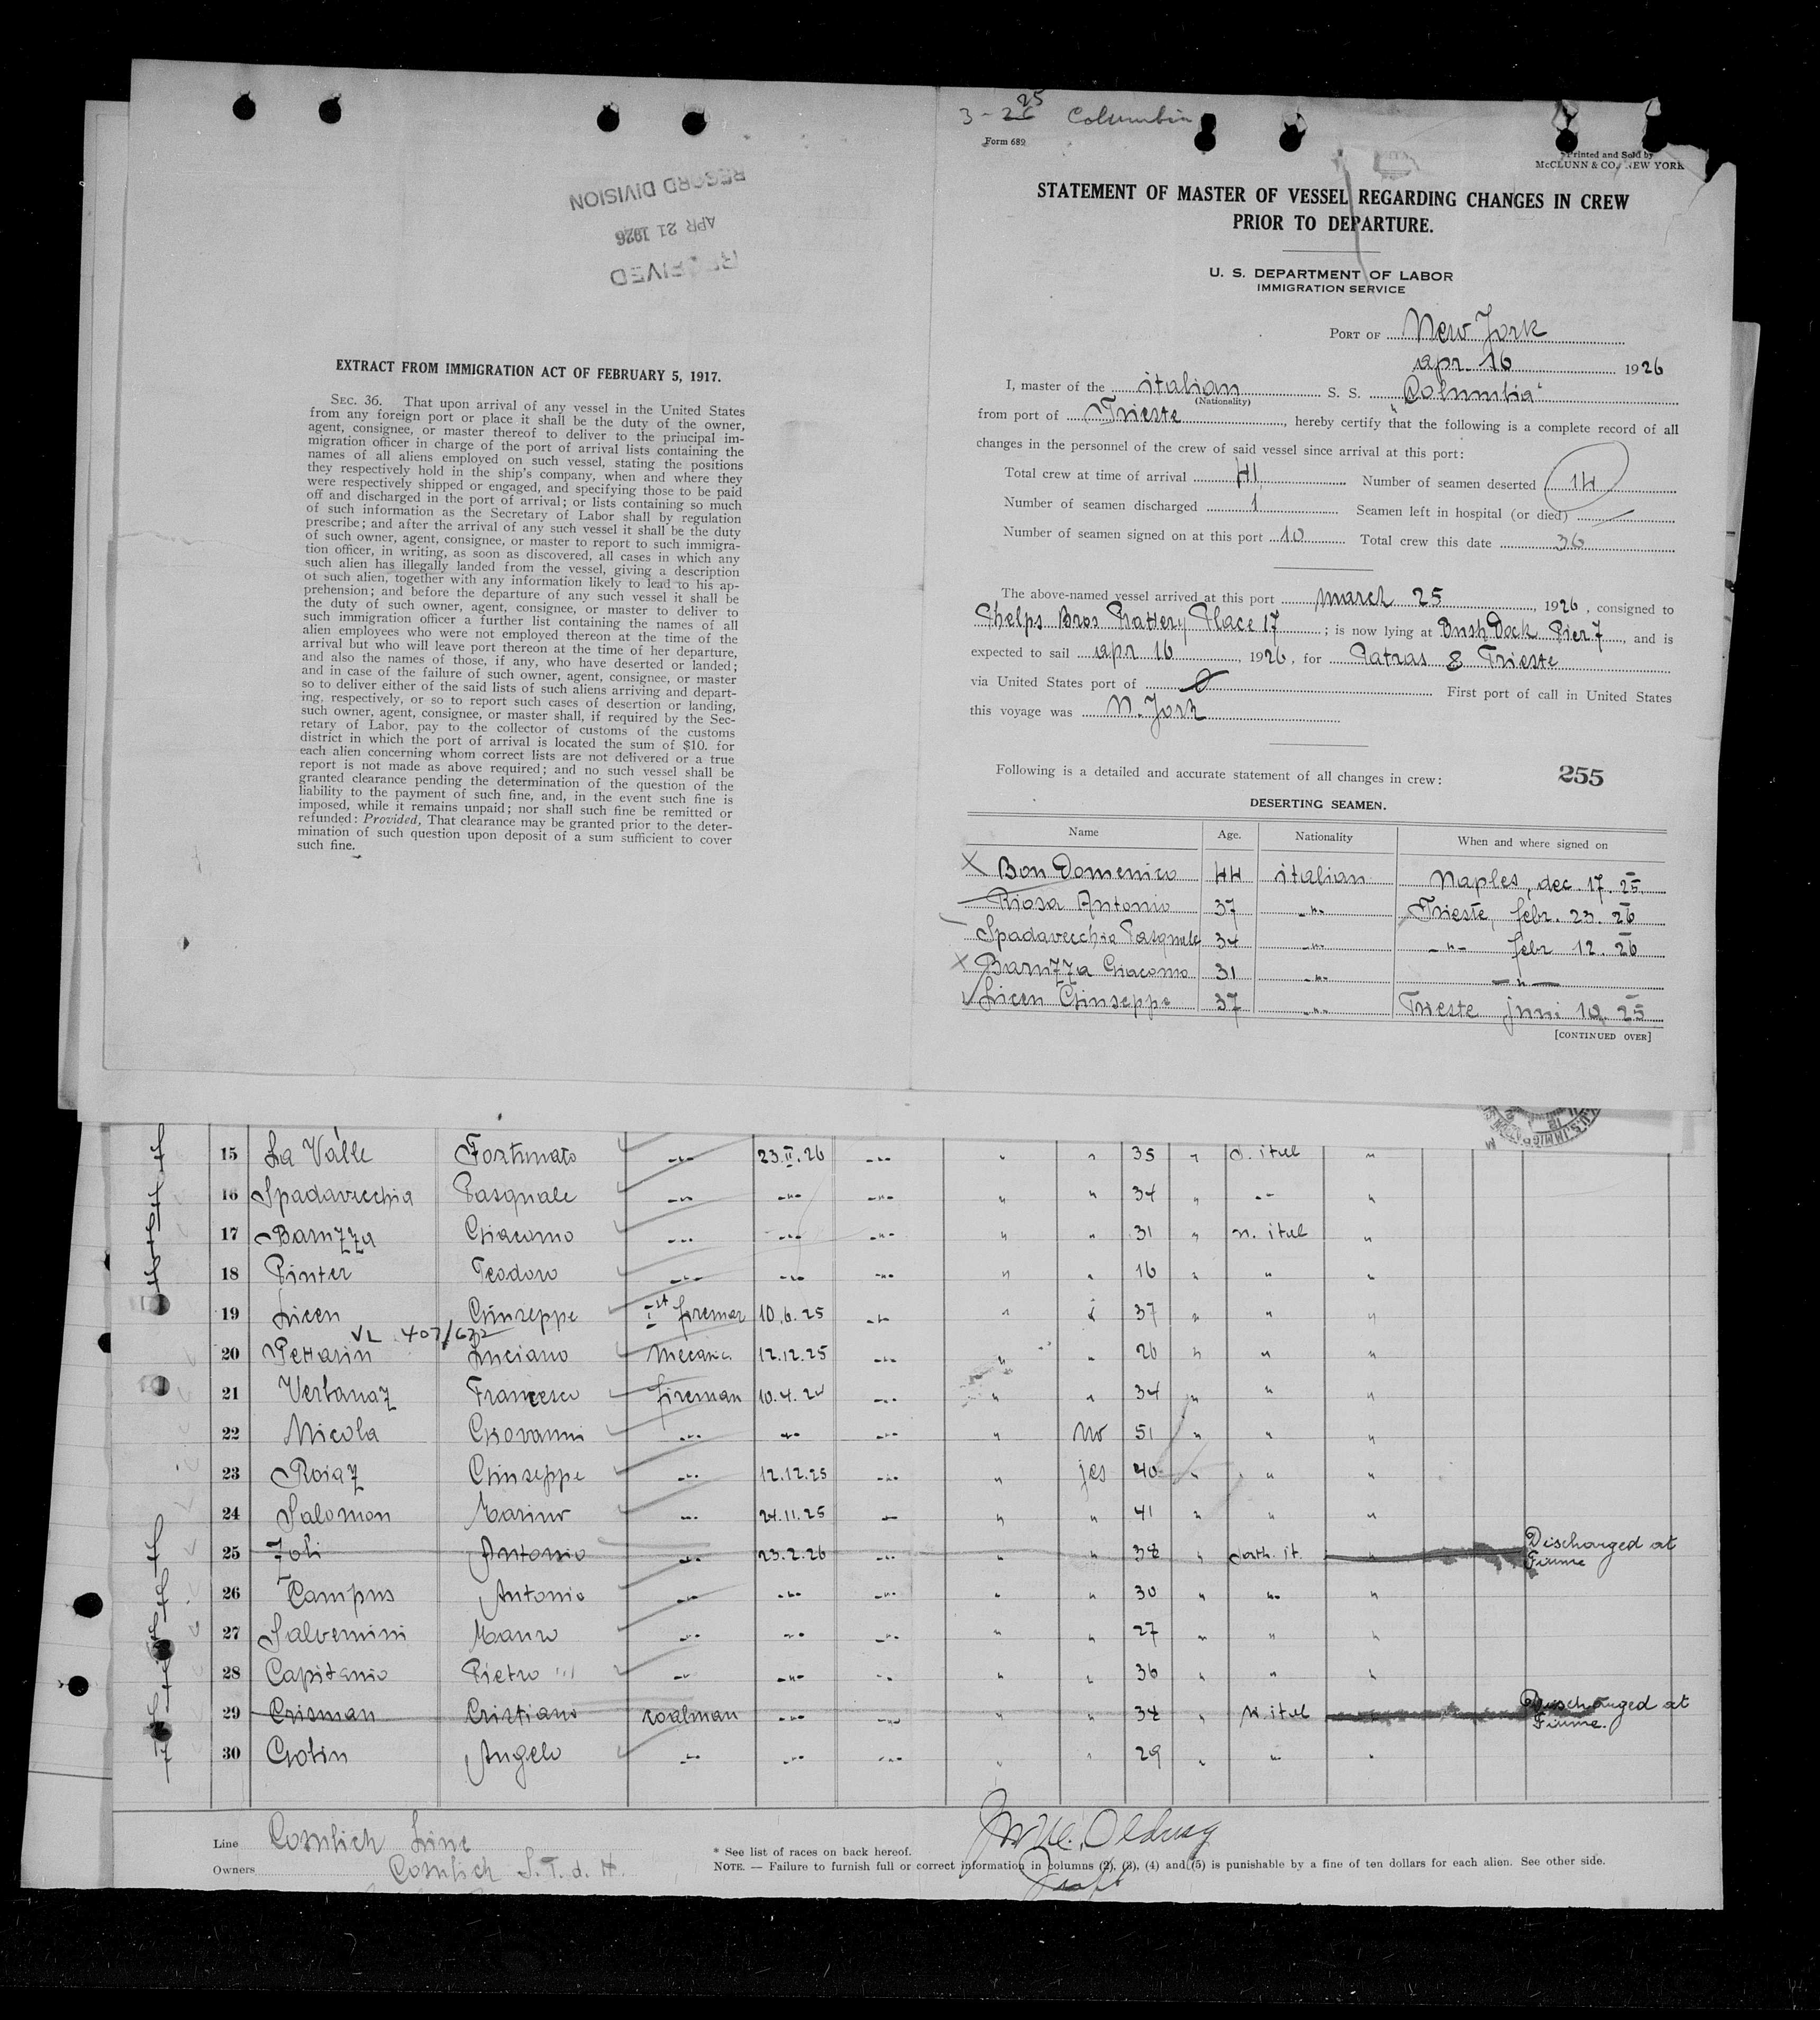 RECORD DIVISION
APR 21 1926
RECEIVED
EXTRACT FROM IMMIGRATION ACT OF FEBRUARY 5, 1917.
SEC. 36. That upon arrival of any vessel in the United States
from any foreign port or place it shall be the duty of the owner,
agent, consignee, or master thereof to deliver to the principal im-
migration officer in charge of the port of arrival lists containing the
names of all aliens employed on such vessel, stating the positions
they respectively hold in the ship's company, when and where they
were respectively shipped or engaged, and specifying those to be paid
off and discharged in the port of arrival; or lists containing so much
of such information as the Secretary of Labor shall by regulation
prescribe; and after the arrival of any such vessel it shall be the duty
of such owner, agent, consignee, or master to report to such immigra-
tion officer, in writing, as soon as discovered, all cases in which any
such alien has illegally landed from the vessel, giving a description
of such alien, together with any information likely to lead to his ap-
prehension; and before the departure of any such vessel it shall be
the duty of such owner, agent, consignee, or master to deliver to
such immigration officer a further list containing the names of all
alien employees who were not employed thereon at the time of the
arrival but who will leave port thereon at the time of her departure,
and also the names of those, if any, who have deserted or landed;
and in case of the failure of such owner, agent, consignee, or master
so to deliver either of the said lists of such aliens arriving and depart-
ing, respectively, or so to report such cases of desertion or landing,
such owner, agent, consignee, or master shall, if required by the Sec-
retary of Labor, pay to the collector of customs of the customs
district in which the port of arrival is located the sum of $10. for
each alien concerning whom correct lists are not delivered or a true
report is not made as above required; and no such vessel shall be
granted clearance pending the determination of the question of the
liability to the payment of such fine, and, in the event such fine is
imposed, while it remains unpaid; nor shall such fine be remitted or
refunded: Provided, That clearance may be granted prior to the deter-
mination of such question upon deposit of a sum sufficient to cover
such fine.
3-26 25 Columbia
Form 689
Printed and Sold by
McCLUNN & CO., NEW YORK
STATEMENT OF MASTER OF VESSEL REGARDING CHANGES IN CREW
PRIOR TO DEPARTURE.
U. S. DEPARTMENT OF LABOR
IMMIGRATION SERVICE
PORT OF New York
apr. 16 1926
I, master of the italian S. S. "Columbia"
(Nationality)
from port of Trieste, hereby certify that the following is a complete record of all
changes in the personnel of the crew of said vessel since arrival at this port:
Total crew at time of arrival 41 Number of seamen deserted 14
Number of seamen discharged 1 Seamen left in hospital (or died)
Number of seamen signed on at this port 10 Total crew this date 36
The above-named vessel arrived at this port march 25, 1926, consigned to
Phelps Bros Battery Place 17; is now lying at Bush Dock Pier 7, and is
expected to sail apr 16, 1926, for Patras & Trieste
via United States port of First port of call in United States
this voyage was N. York
Following is a detailed and accurate statement of all changes in crew: 255
DESERTING SEAMEN.
Name Age. Nationality When and where signed on
X Bon Domenico 44 italian Naples, dec. 17. 25.
Riosa Antonio 37 -"- Trieste, febr. 23. 26
Spadavecchia Pasquale 34 -"- -"- febr 12. 26
X Baruzza Giacomo 31 -"- -"-
Licen Giuseppe 37 -"- Trieste juni 10. 25
[CONTINUED OVER]
15 La Valle Fortunato -"- 23.II.26 -"- " " 35 " S. ital "
16 Spadavecchia Pasquale -"- -"- -"- " " 34 " -"- "
17 Baruzza Giacomo -"- -"- -"- " " 31 " n. ital "
18 Pinter Teodoro -"- -"- -"- " " 16 " " "
19 Licen Giuseppe 1st fireman 10.6.25 -"- " " 37 " " "
VL 407/672
20 Petrarin Luciano Mecanic. 12.12.25 -"- " " 26 " " "
21 Verbanaz Francesco fireman 10.4.24 -"- " " 34 " " "
22 Nicola Giovanni -"- -"- -"- " no 51 " " "
23 Roiaz Giuseppe -"- 12.12.25 -"- " jes 40 " " "
24 Salomon Marino -"- 24.11.25 -"- " " 41 " " "
25 Zoli Antonio -"- 23.2.26 -"- " " 38 " south. it. " Discharged at Fiume
26 Campus Antonio -"- -"- -"- " " 30 " -"- "
27 Salvemini Mauro -"- -"- -"- " " 27 " " "
28 Capitanio Pietro -"- -"- -"- " " 36 " " "
29 Crisman Cristiano coalman -"- -"- " " 34 " N ital Discharged at Fiume.
30 Gotin Angelo -"- -"- -"- " " 29 " " "
Line Cosulich Line
Owners Cosulich S.T.d.N.
* See list of races on back hereof.
NOTE. — Failure to furnish full or correct information in columns (2), (3), (4) and (5) is punishable by a fine of ten dollars for each alien. See other side.